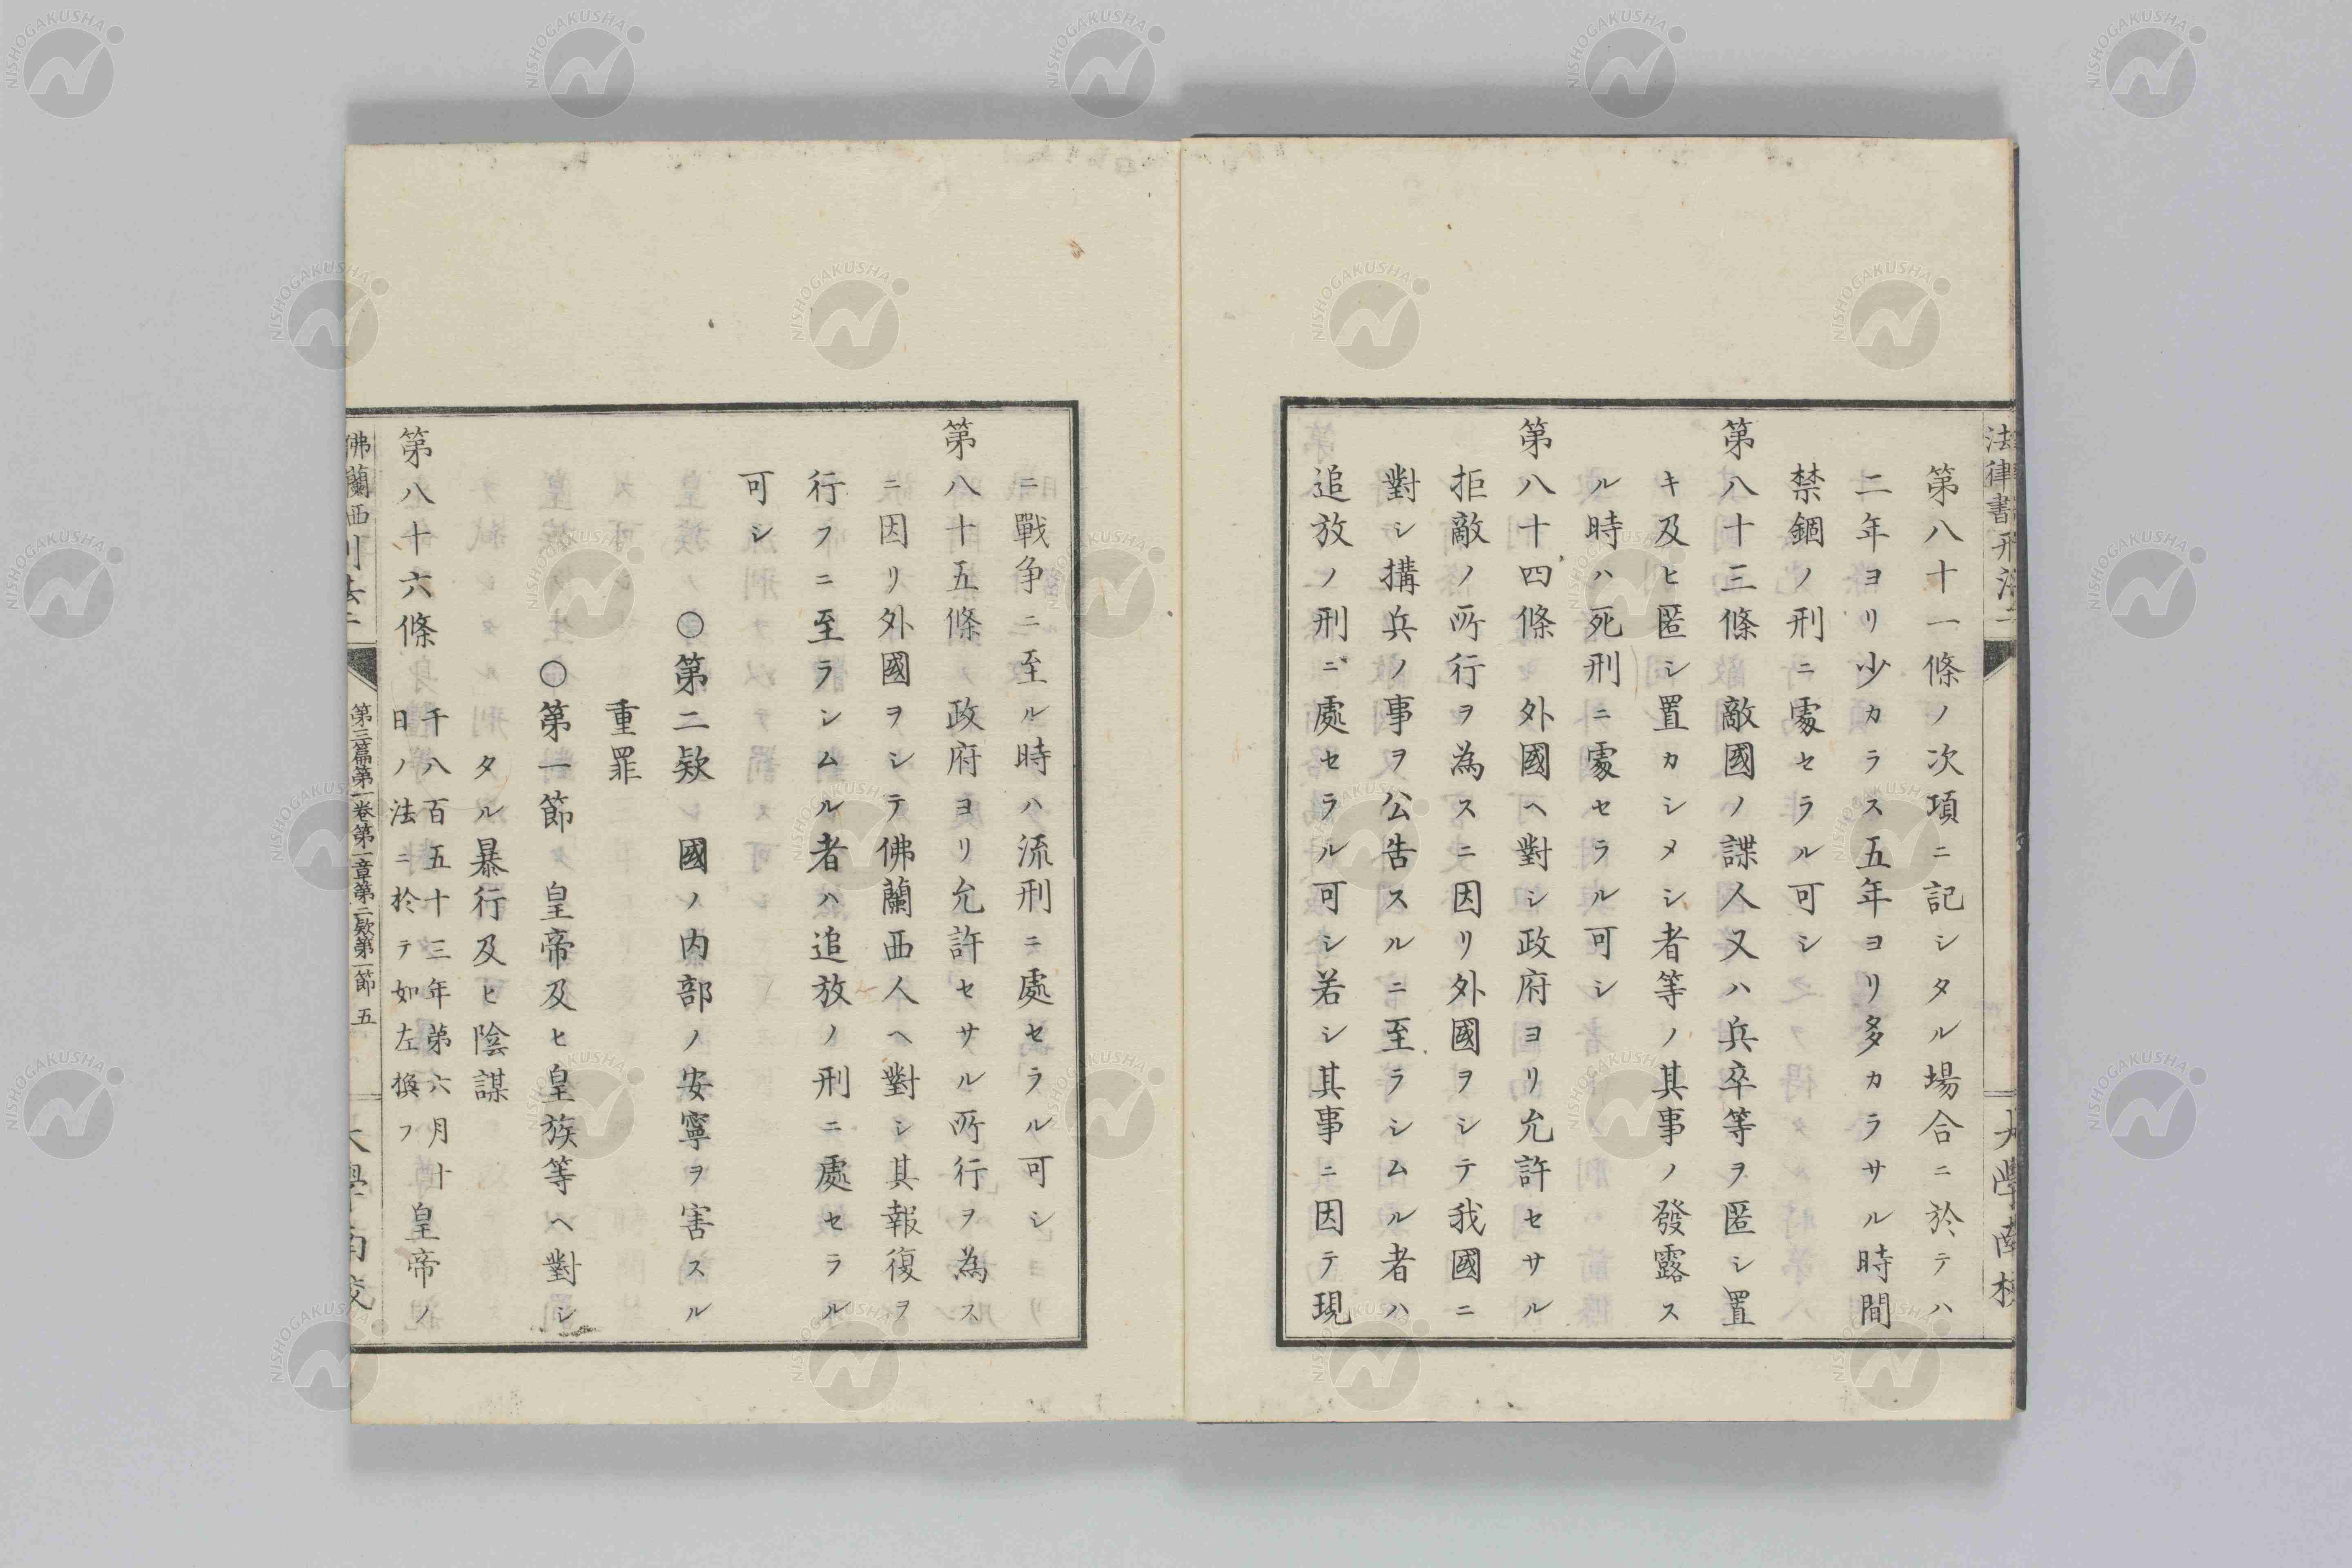 第八十一條ノ次項ニ記シタル場合ニ於テハ
二年ヨリ少カラス五年ヨリ多カラサル時間
禁錮ノ刑ニ處セラル可シ
第八十三條 敵國ノ諜人又ハ兵卒等ヲ匿シ置
キ及ヒ匿シ置カシメシ者等ノ其事ノ發露ス
ル時ハ死刑ニ處セラル可シ
第八十四條 外國ヘ對シ政府ヨリ允許セサル
拒敵ノ所行ヲ為スニ因リ外國ヲシテ我國ニ
對シ搆兵ノ事ヲ公告スルニ至ラシムル者ハ
追放ノ刑ニ處セラル可シ若シ其事ニ因テ現
ニ戰争ニ至ル時ハ流刑ニ處セラル可シ
第八十五條 政府ヨリ允許セサル所行ヲ為ス
ニ因リ外國ヲシテ佛蘭西人ヘ對シ其報復ヲ
行フニ至ラシムル者ハ追放ノ刑ニ處セラル
可シ
○第二欵 國ノ内部ノ安寧ヲ害スル
重罪
○第一節 皇帝及ヒ皇族等ヘ對シ
タル暴行及ヒ陰謀
第八十六條 千八百五十三年第六月十
日ノ法ニ於テ如左換フ 皇帝ノ
佛蘭西刑法二
第三篇第一卷第一章第二欵第一節 五
大學南校
法律書刑法二
大學南校
NISHOGAKUSHA